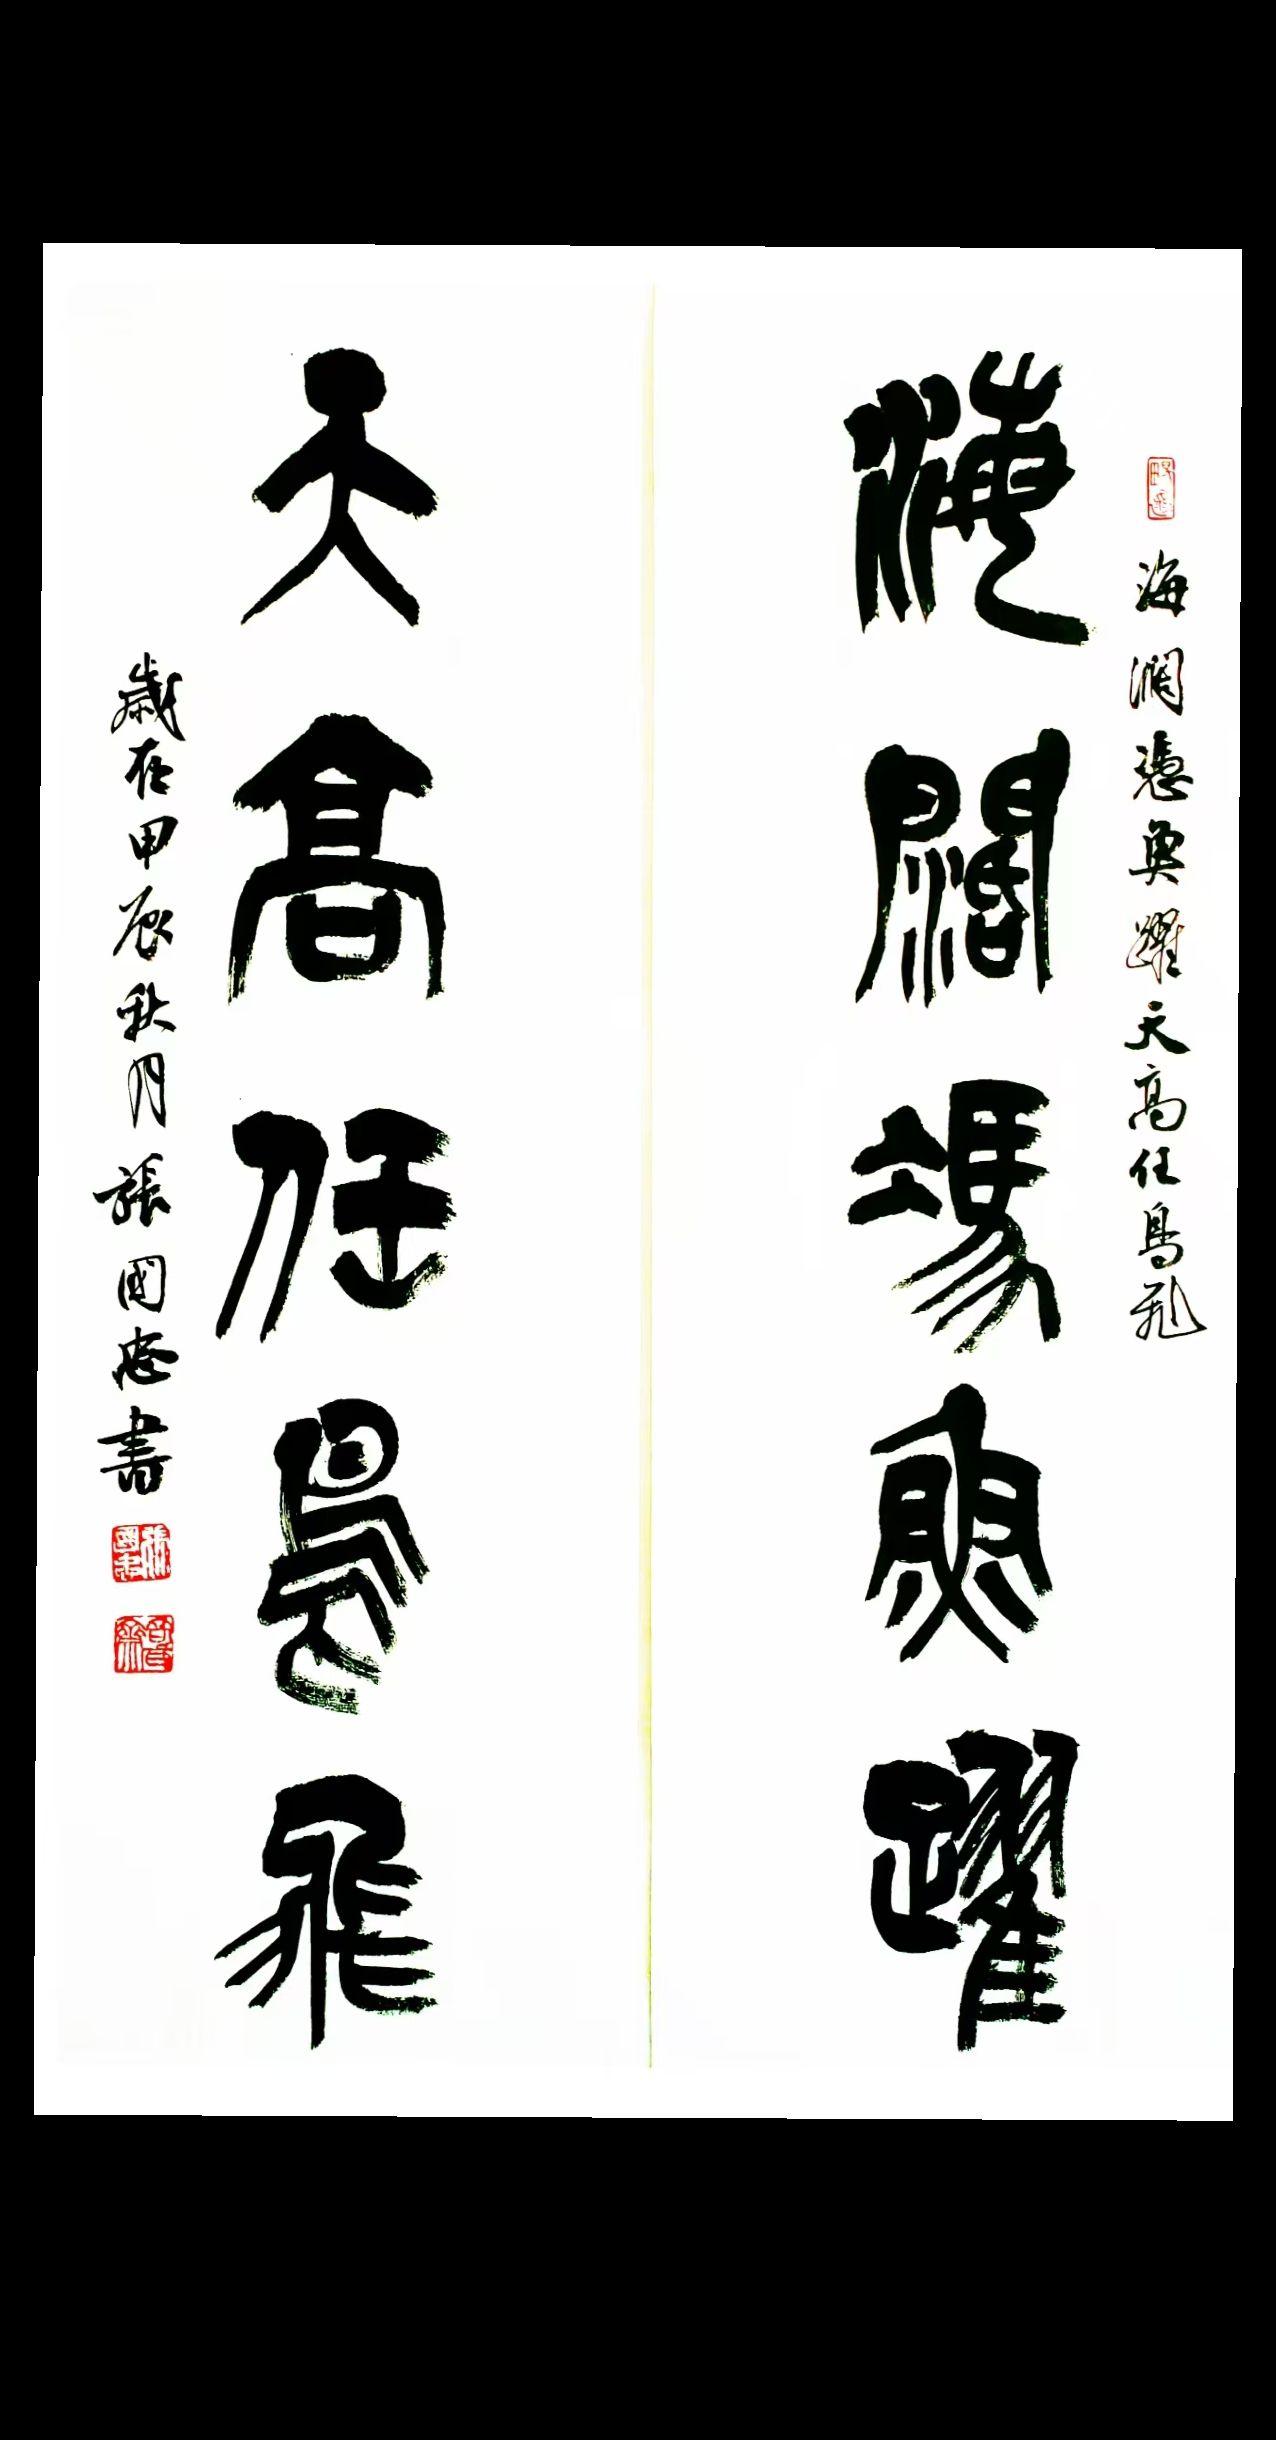 海闊憑魚躍天高任鳥飛
海闊凴魚躍
天高任鳥飛
歲在甲辰秋月張國忠書
張國忠